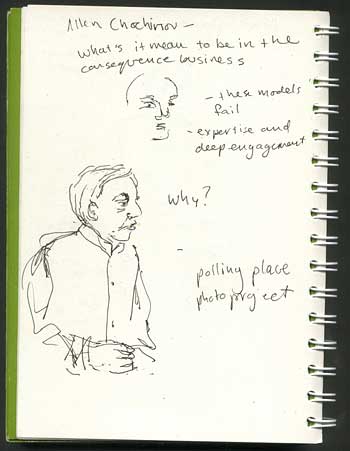 Allen Chochinov -
what's it mean to be in the
consequence business
- these models
fail
- expertise and
deep engagement
why?
-
polling place
photo project